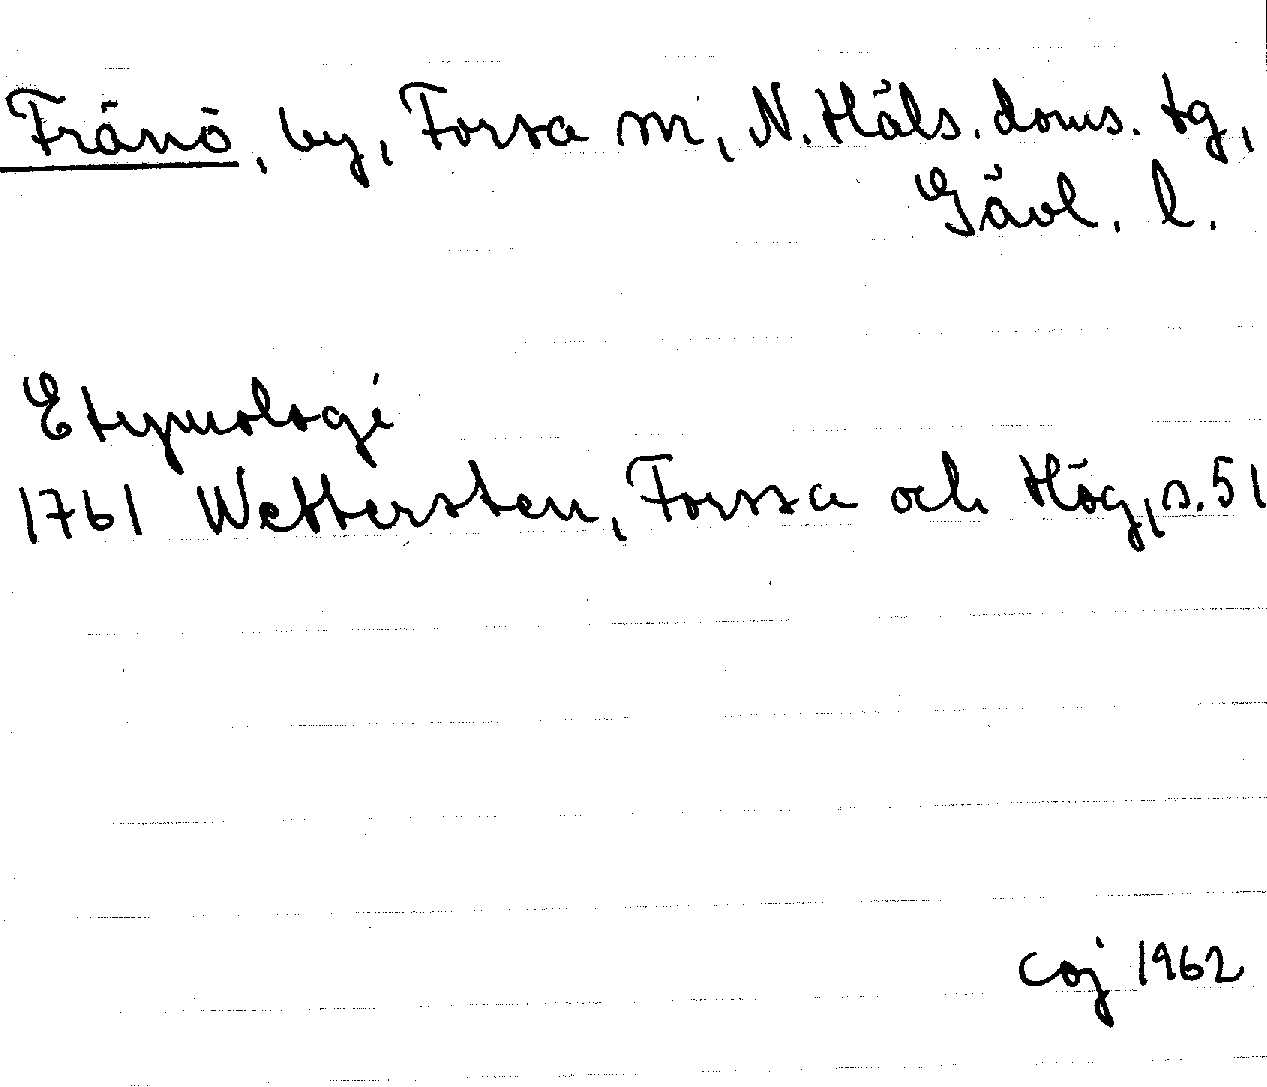 Fränö, by, Forsa sn, N. Häls. doms. tg,
Gävl. l.
Etymologi
1761 Wettersten, Forssa och Hög, s. 51
coj 1962